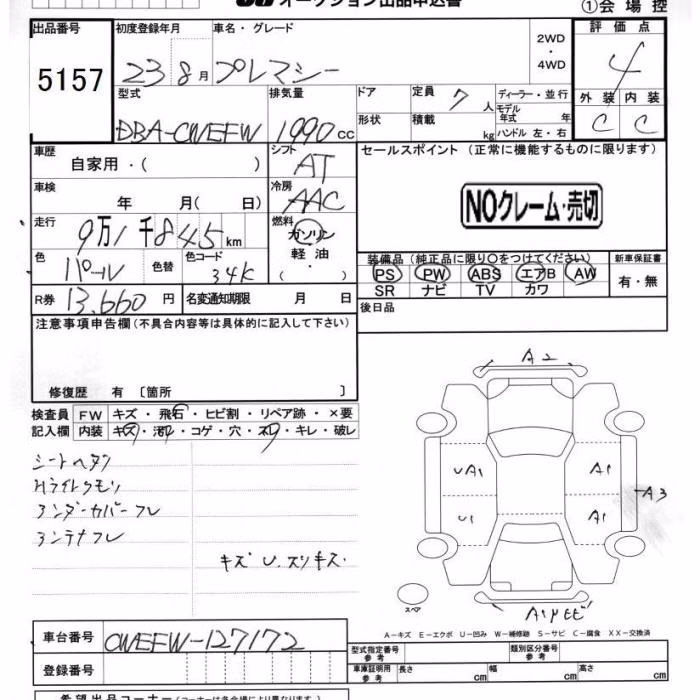 オークション出品申込書
①会場控
出品番号
5157
初度登録年月
23 8月
車名・グレード
プレマシー
2WD
・
4WD
評価点
4
外装 内装
C C
型式
DBA-CWEFW
排気量
1990 cc
ドア
形状
定員 7人
積載 kg
ディーラー・並行
モデル年式 年
ハンドル 左・右
車歴
自家用・( )
シフト
AT
セールスポイント (正常に機能するものに限ります)
NOクレーム・売切
車検
年 月( 日)
冷房
AAC
走行
9万1千845km
燃料
ガソリン
軽油
( ・ )
色
パール
色替
色コード
34K
装備品(純正品に限り○をつけてください)
PS PW ABS エアB AW
SR ナビ TV カワ
新車保証書
有・無
R券 13,660円
名変通知期限 月 日
後日品
注意事項申告欄(不具合内容等は具体的に記入して下さい)
修復歴 有 〔箇所 〕
検査員
記入欄
FW キズ・飛石・ヒビ割・リペア跡・×要
内装 キズ・汚レ・コゲ・穴・スレ・キレ・破レ
シートヘタリ
Hライトクモリ
アンダーカバーフレ
アンテナフレ
キズ U. スリキズ.
A2
UA1 A1
A3
U1 A1
スペア
A1Pヒビ
A−キズ E−エクボ U−凹み W−補修跡 S−サビ C−腐食 XX−交換済
車台番号
CWEFW-127172
登録番号
型式指定番号
参考
類別区分番号
参考
車庫証明用
参考
長さ cm
幅 cm
高さ cm
希望出品コーナー(コーナーは各会場により異なります。)